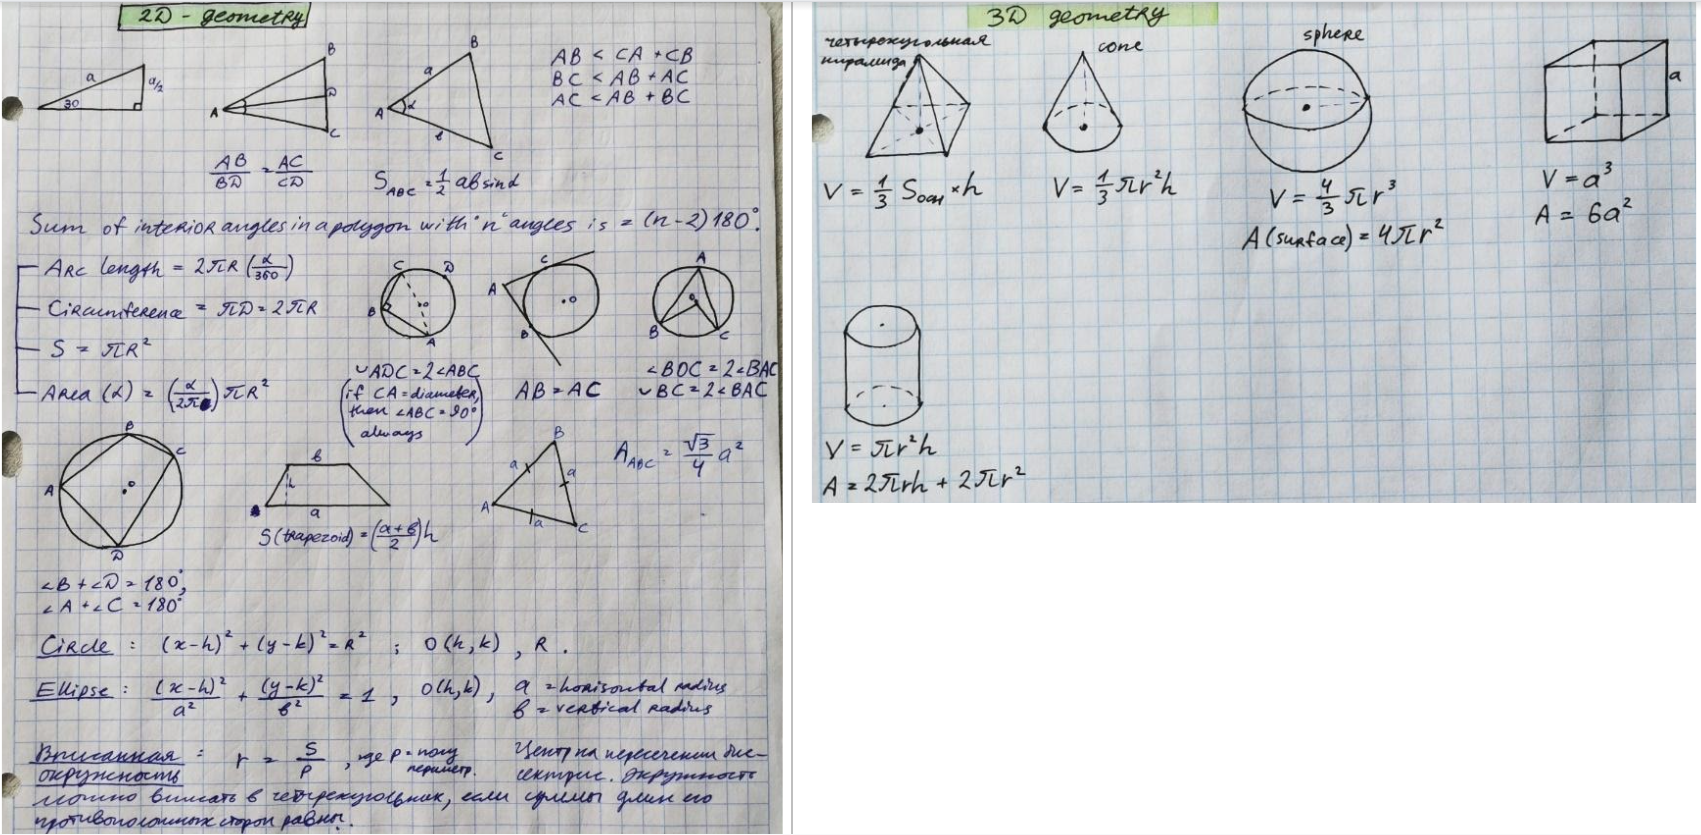 2D - geometry
a
a/2
30
A
B
D
C
A
B
C
a
α
в
AB < CA + CB
BC < AB + AC
AC < AB + BC
AB/BD = AC/CD
S_ABC = 1/2 ab sinα
Sum of interior angles in a polygon with "n" angles is = (n-2)180°.
Arc length = 2πR(α/360)
Circumference = πD = 2πR
S = πR²
Area (α) = (α/2π)πR²
C
D
B
A
o
◡ADC = 2∠ABC
(if CA = diameter,
then ∠ABC = 90°
always)
A
C
B
o
AB = AC
A
B
C
o
∠BOC = 2∠BAC
◡BC = 2∠BAC
A
B
C
D
o
∠B + ∠D = 180°,
∠A + ∠C = 180°
в
h
a
S(trapezoid) = (a+в/2)h
A
B
C
a
a
a
A_ABC = √3/4 a²
Circle : (x-h)² + (y-k)² = R² ; O(h,k) , R.
Ellipse : (x-h)²/a² + (y-k)²/в² = 1 , O(h,k) , a = horisontal radius
в = vertical radius
Вписанная окружность : r = S/p , где p = полупериметр.
Центр на пересечении бис-
сектрис. Окружность
можно вписать в четырехугольник, если суммы длин его
противоположных сторон равны.
3D geometry
четырехугольная
пирамида
V = 1/3 Sосн × h
cone
V = 1/3 πr²h
sphere
V = 4/3 πr³
A (surface) = 4πr²
a
V = a³
A = 6a²
V = πr²h
A = 2πrh + 2πr²